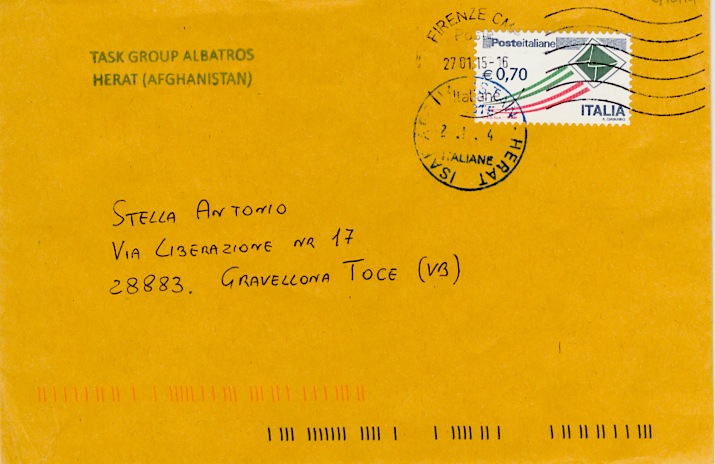 TASK GROUP ALBATROS
HERAT (AFGHANISTAN)
FIRENZE
Poste
27.01.15-16
Italiane
Posteitaliane
€ 0,70
ITALIA
ISAF
ITALIANE
HERAT
STELLA ANTONIO
VIA LIBERAZIONE NR 17
28883. GRAVELLONA TOCE (VB)